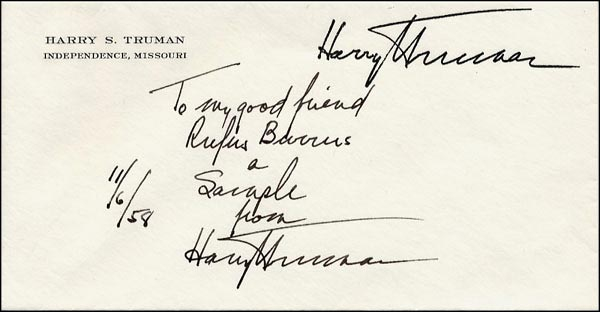 HARRY S. TRUMAN
INDEPENDENCE, MISSOURI
Harry S Truman
To my good friend
Rufus Burrus
a
Sample
from
11/6/58
Harry S Truman